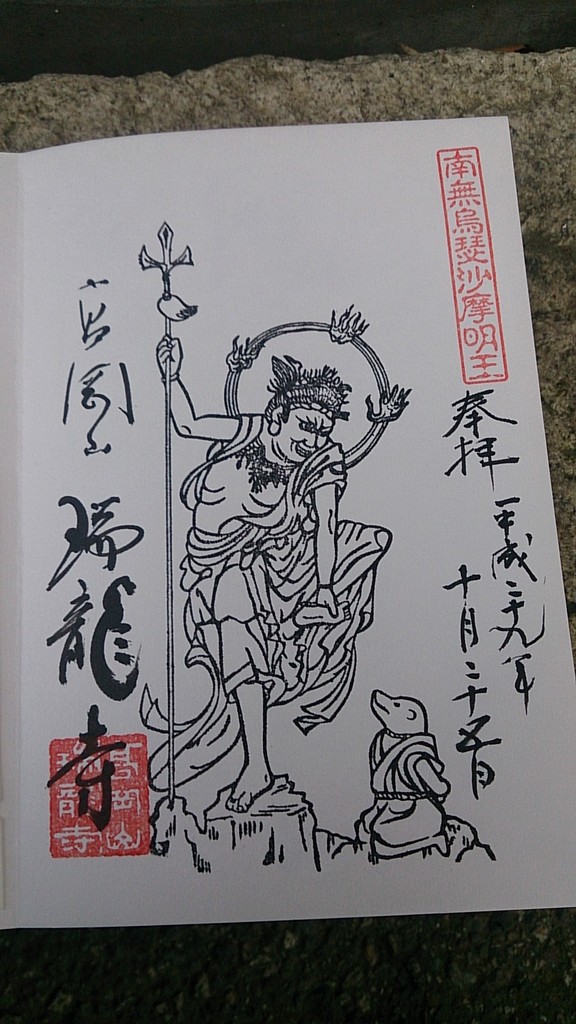 南無烏瑟沙摩明王
奉拝
平成二十九年
十月二十五日
高岡山
瑞龍寺
高岡山
瑞龍寺